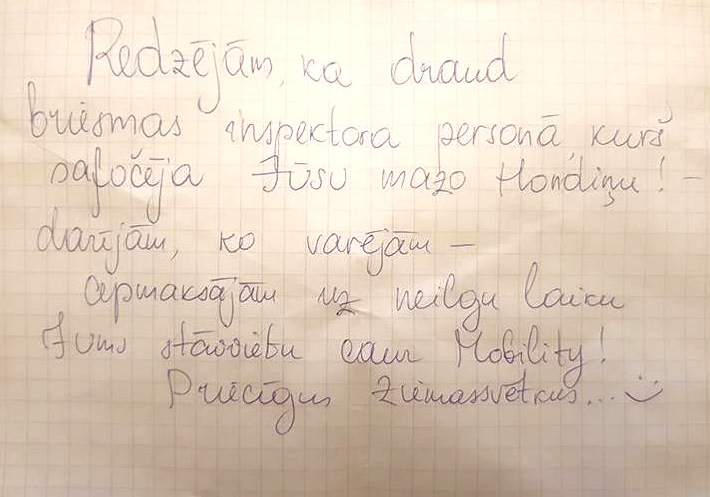 Redzējām, ka draud
briesmas inspektora personā, kurš
safočēja Jūsu mazo Hondiņu! -
darījām, ko varējām –
apmaksājām uz neilgu laiku
Jums stāvvietu caur Mobility!
Priecīgus Ziemassvētkus... :)